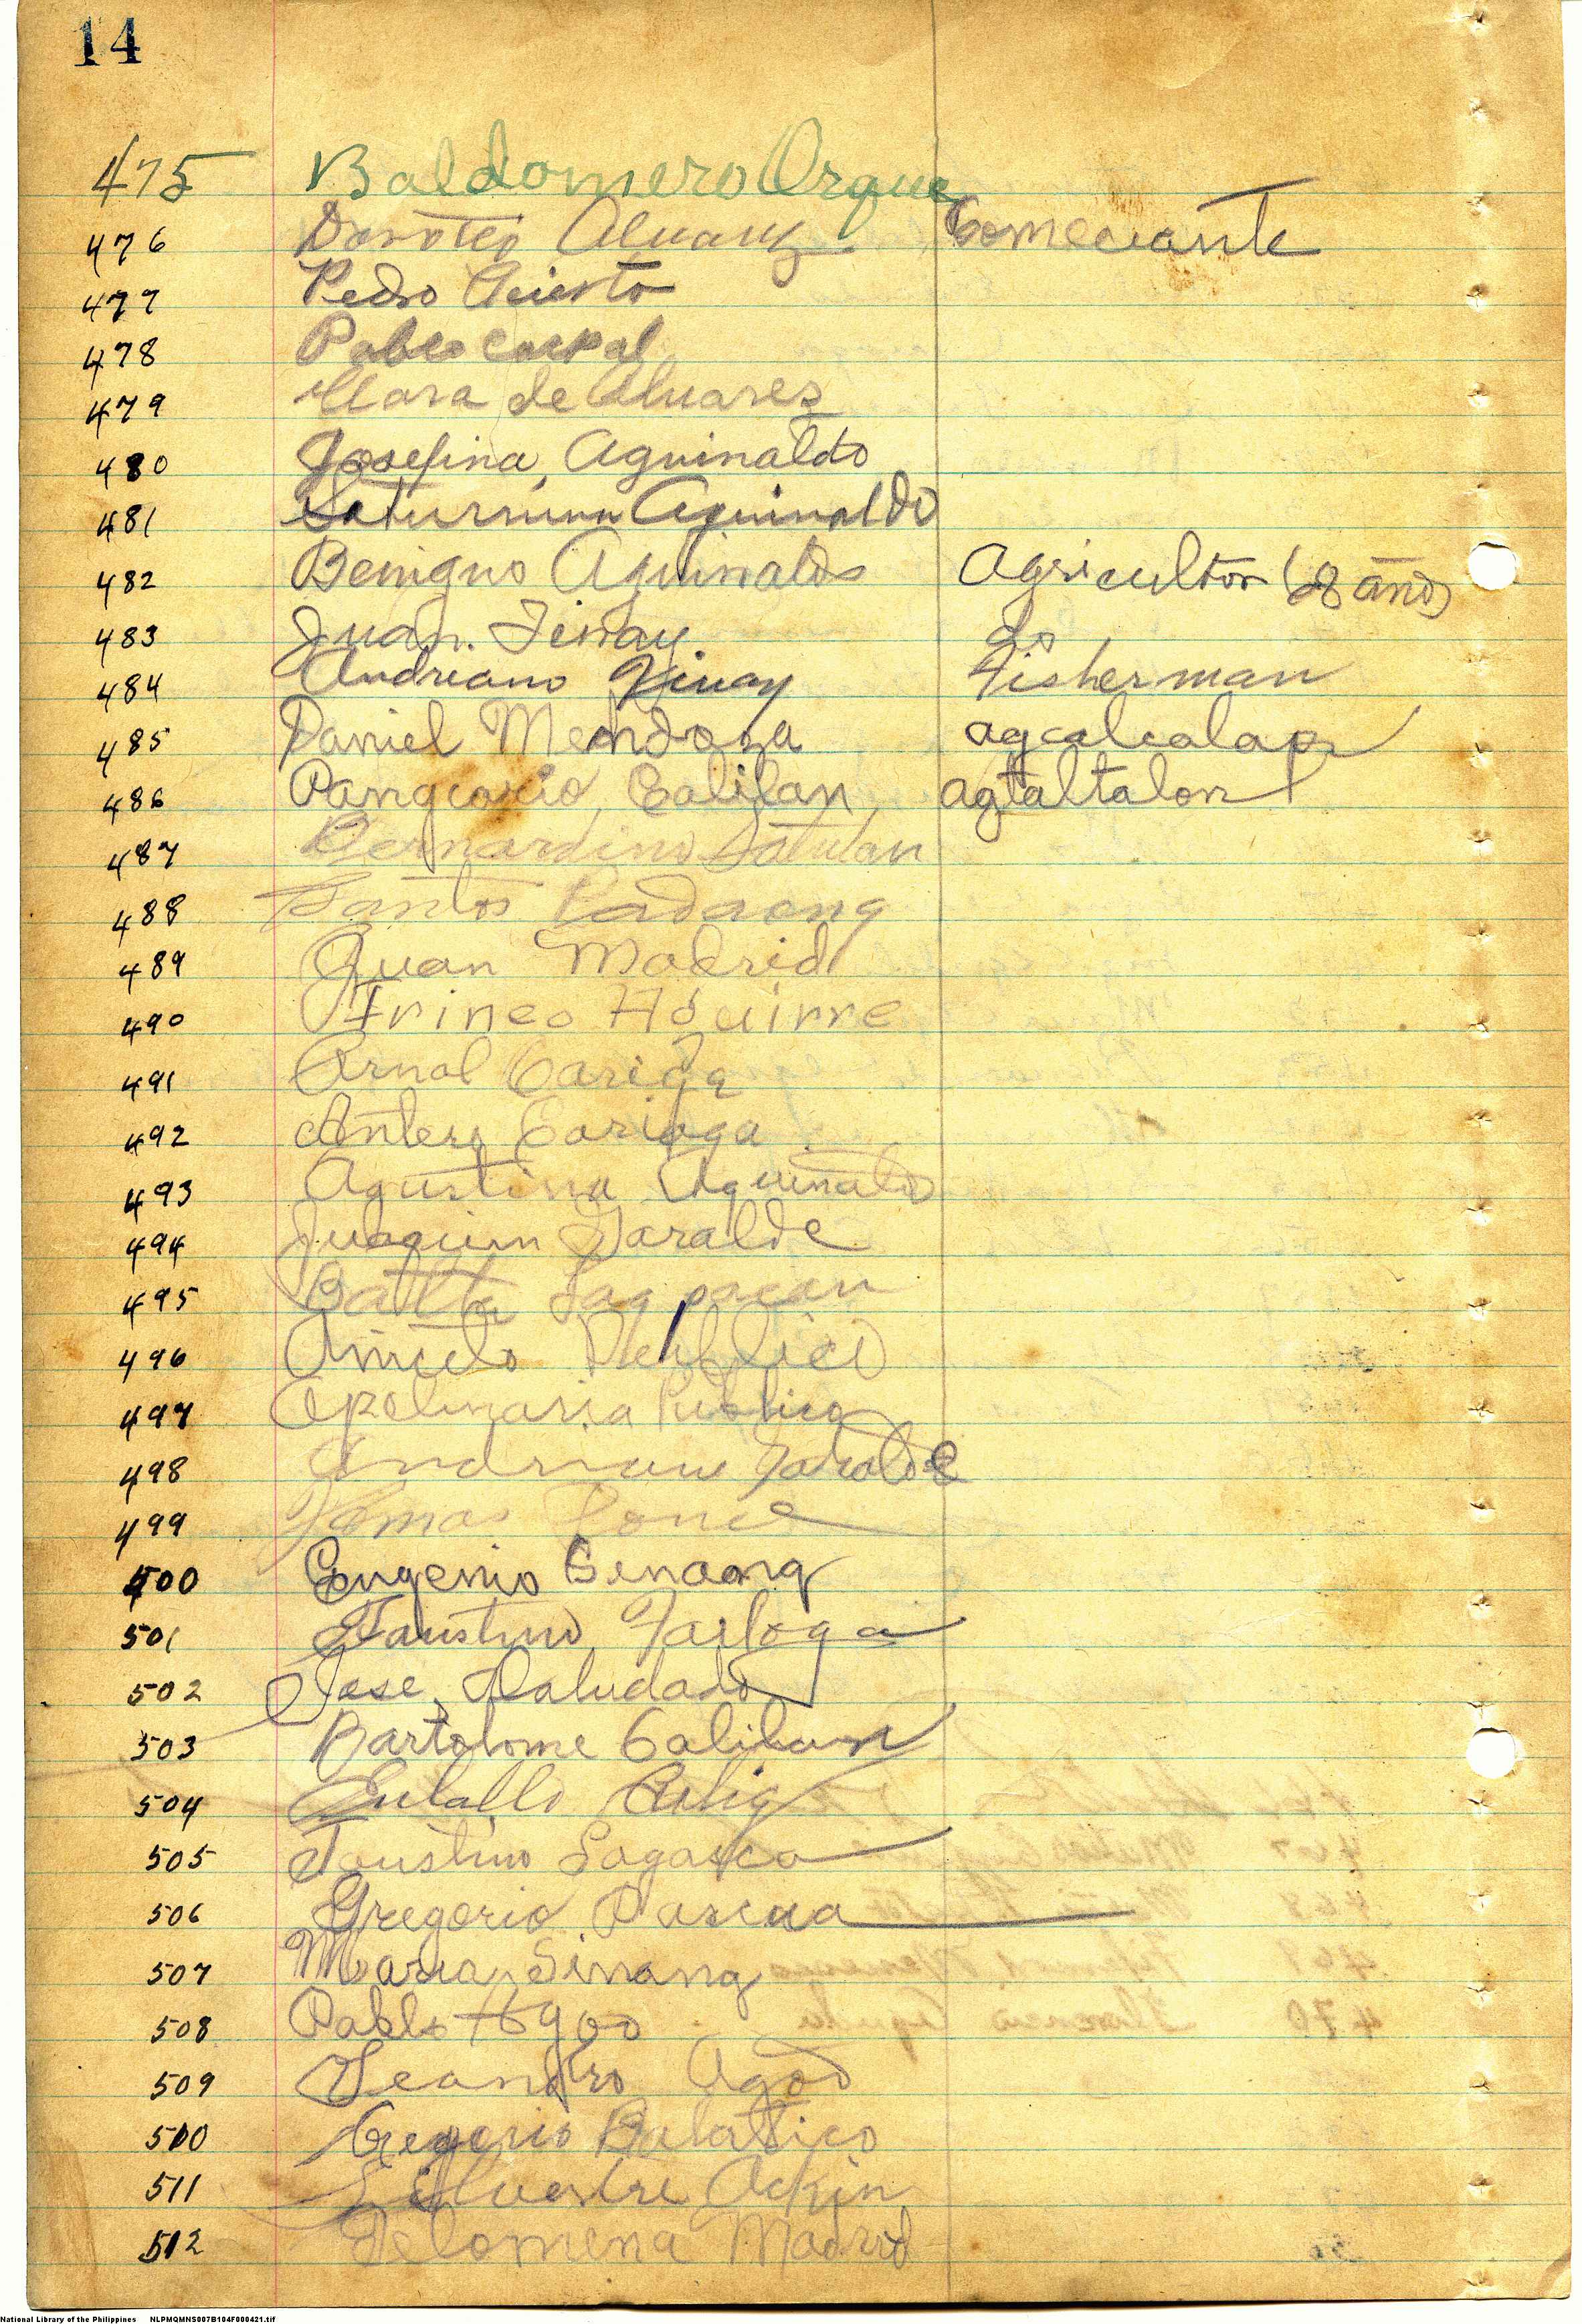 14
475 Baldomero Orque
476 Doroteo Alvarez Comeciante
477 Pedro Acierto
478 Pablo Carpal
479 Clara de Alvares
480 Josefina Aguinaldo
481 Saturnina Aguinaldo
482 Benigno Aguinaldo Agricultor (28 años)
483 Juan Finay do
484 Andriano Finay Fisherman
485 Daniel Mendoza agcalcalap
486 Pangracio Calilan agtaltalon
487 Bernardino Batulan
488 Santos Cadaong
489 Juan Madrid
490 Irineo Aguirre
491 Arnol Cariga
492 Antero Cariaga
493 Agustina Aguinaldo
494 Juaquin Garalde
495 Batta Lagpacan
496 Aniceto Publico
497 Apolinaria Publico
498 Andriano Garalde
499 Tomas Ponce
500 Eugenio Benaong
501 Faustino Farloga
502 Jose Daludado
503 Bartolome Calilan
504 Eulallo
505 Faustino Lagasca
506 Gregorio Pascua
507 Maria Sinang
508 Pablo Agoo
509 Leandro Agoo
510 Gregorio Balatico
511 Silvestre Ackin
512 Felomena Madrid
National Library of the Philippines NLPMQMNS007B104F000421.tif